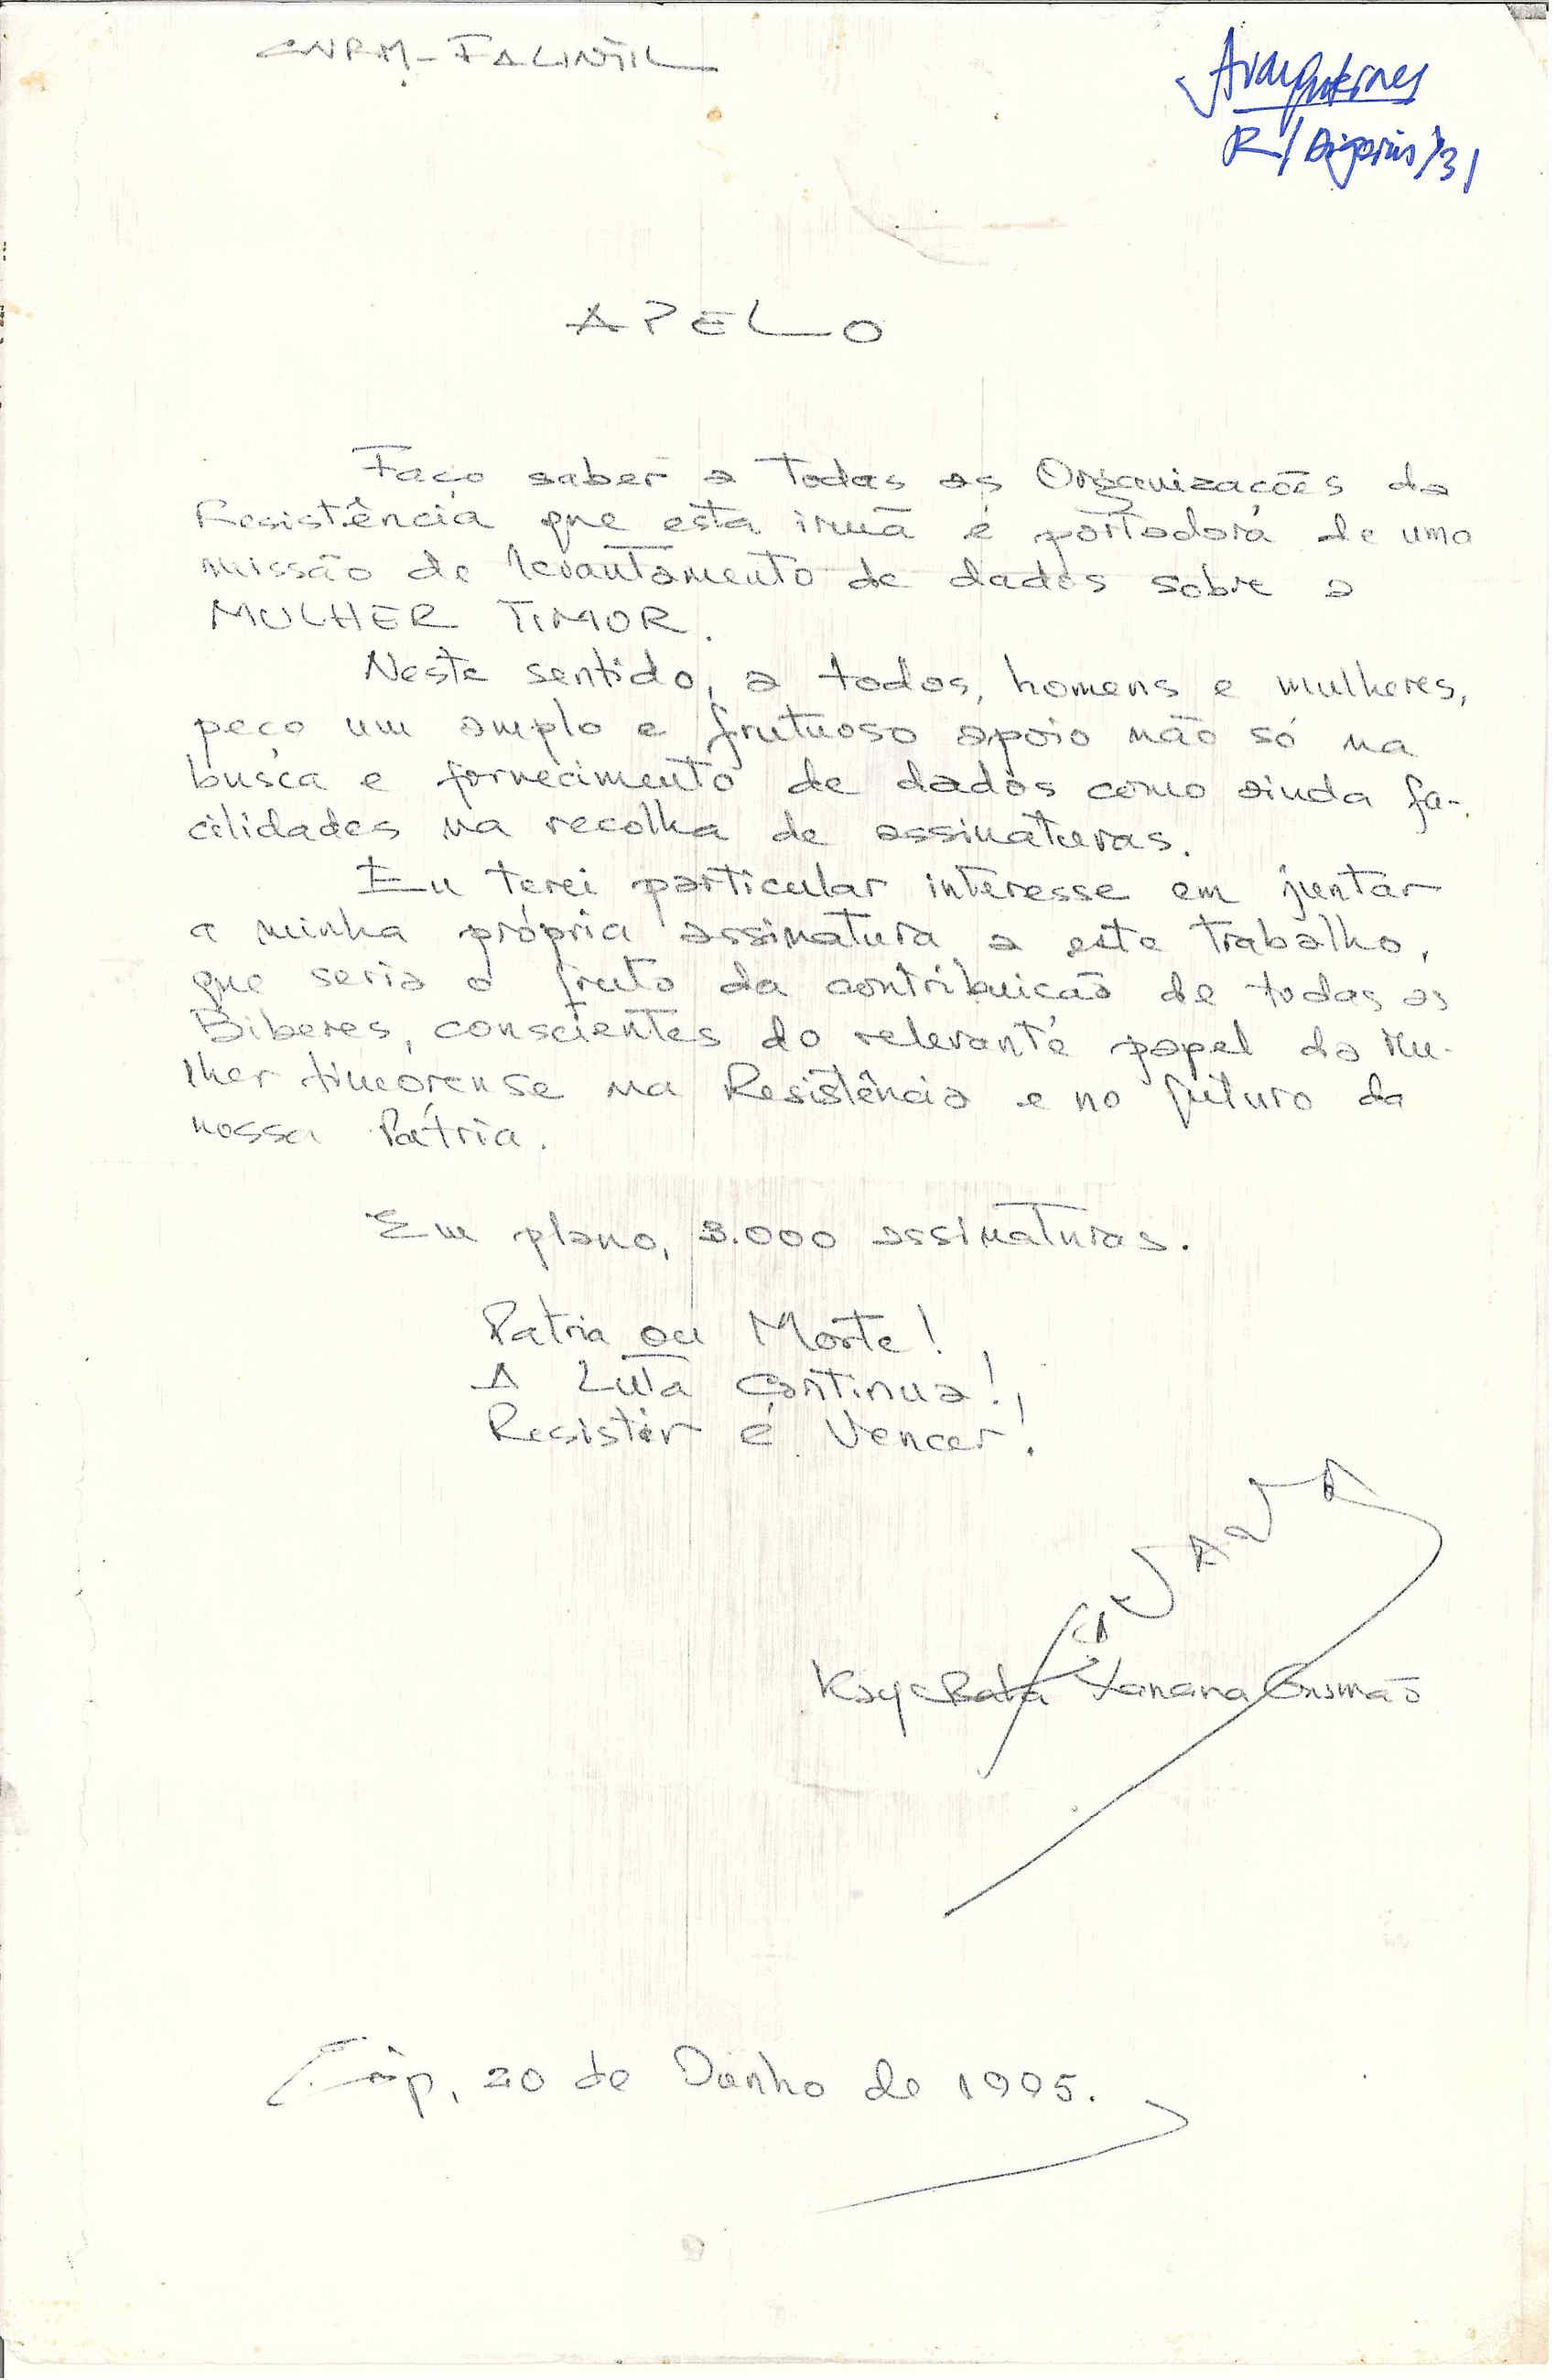 CNRM-FALINTIL
APELO
Faço saber a todas as Organizações da
Resistência que esta irmã é portadora de uma
missão de levantamento de dados sobre a
MULHER TIMOR.
Neste sentido, a todos, homens e mulheres,
peço um amplo e frutuoso apoio não só na
busca e fornecimento de dados como ainda fa-
cilidades na recolha de assinaturas.
Eu terei particular interesse em juntar
a minha própria assinatura a este trabalho,
que seria o fruto da contribuição de todas as
Biberes, conscientes do relevante papel da Mu-
lher timorense na Resistência e no futuro da
nossa Pátria.
Em plano, 3.000 assinaturas.
Patria ou Morte!
A Luta Continua!
Resistir é Vencer!
Xanana Gusmão
20 de Junho de 1995.